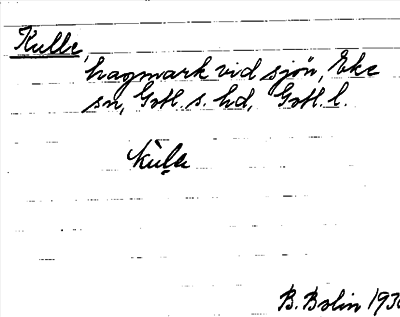 Kulle,
hagmark vid sjön, Eke
sn, Gotl. s. hd, Gotl. l.
B. Bolin 193